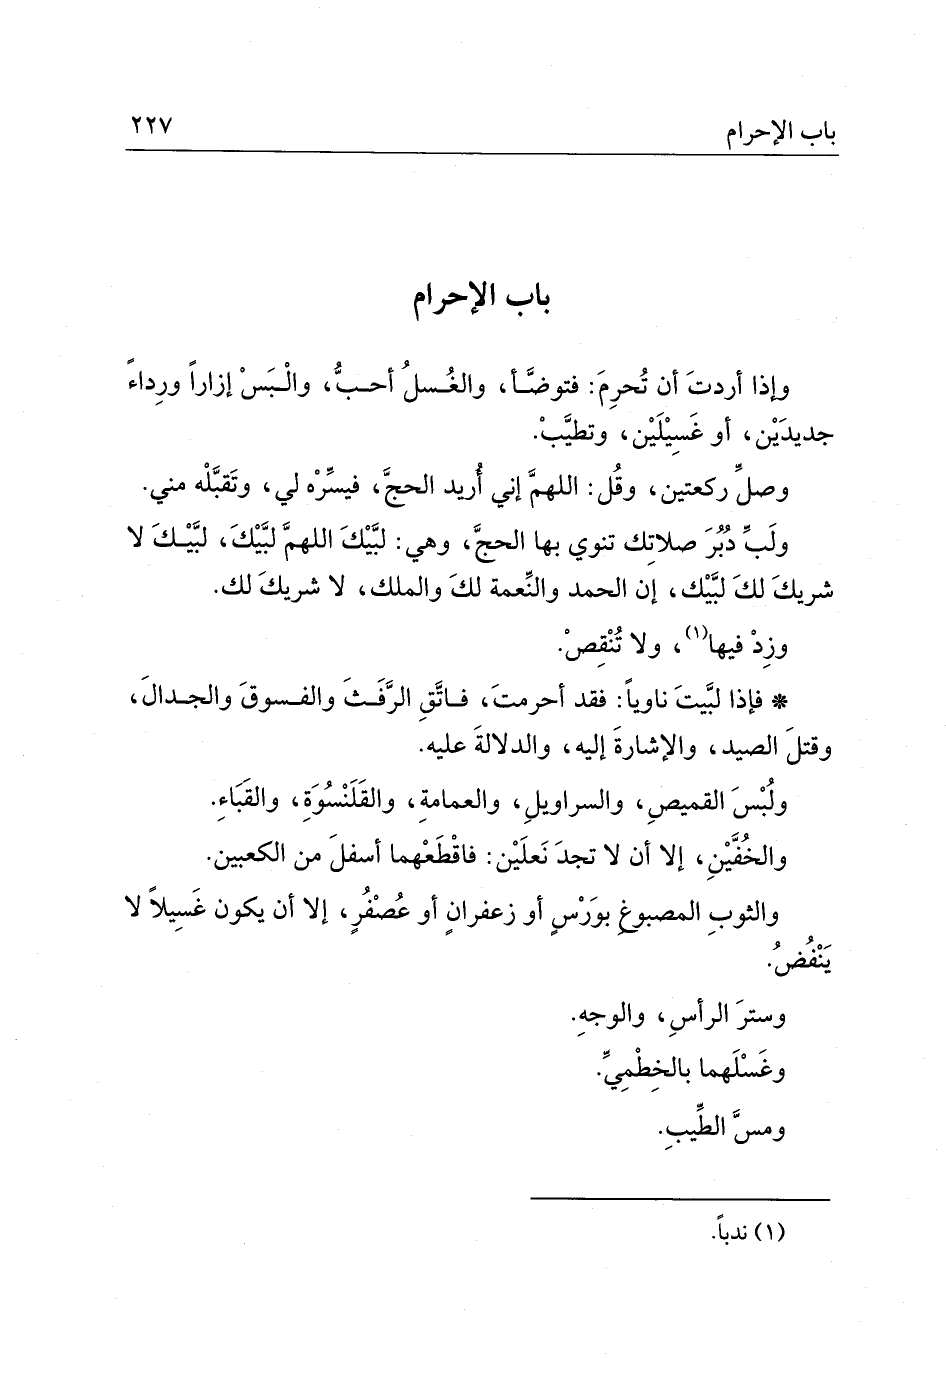 باب الإحرام ٢٢٧
باب الإحرام
وإذا أردتَ أن تُحرِمَ: فتوضَّأ، والغُسلُ أحبُّ، والْبَسْ إزاراً ورِداءً
جديدَيْن، أو غَسِيْلَيْن، وتطيَّبْ.
وصلِّ ركعتين، وقُل: اللهمَّ إني أُريد الحجَّ، فيسِّرْه لي، وتَقبَّلْه مني.
ولَبِّ دُبُرَ صلاتِك تنوي بها الحجَّ، وهي: لبَّيْكَ اللهمَّ لبَّيْكَ، لبَّيْكَ لا
شريكَ لكَ لبَّيْك، إن الحمد والنِّعمة لكَ والملك، لا شريكَ لك.
وزِدْ فيها(١)، ولا تُنْقِصْ.
* فإذا لبَّيتَ ناوياً: فقد أحرمتَ، فاتَّقِ الرَّفَثَ والفسوقَ والجدالَ،
وقتلَ الصيد، والإشارةَ إليه، والدلالةَ عليه.
ولُبْسَ القميصِ، والسراويلِ، والعمامةِ، والقَلَنْسُوَةِ، والقَبَاءِ.
والخُفَّيْنِ، إلا أن لا تجدَ نَعلَيْن: فاقْطَعْهما أسفلَ من الكعبين.
والثوبِ المصبوغِ بوَرْسٍ أو زعفرانٍ أو عُصْفُرٍ، إلا أن يكون غَسِيلاً لا
يَنْفُضُ.
وسترَ الرأسِ، والوجهِ.
وغَسْلَهما بالخِطْمِيِّ.
ومسَّ الطِّيبِ.
(١) ندباً.